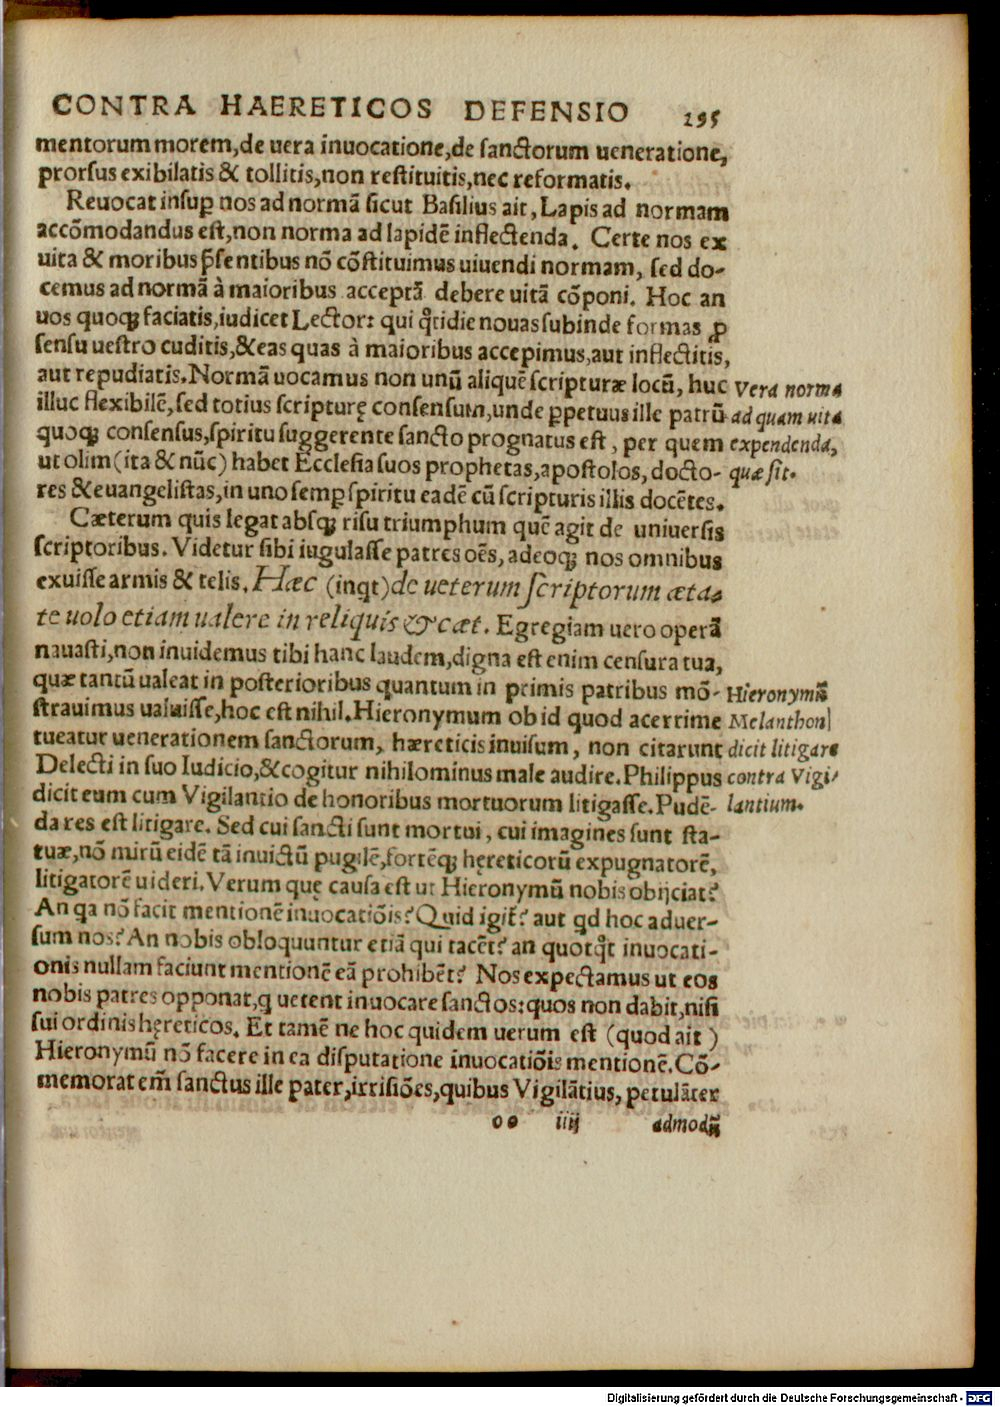 CONTRA HAERETICOS DEFENSIO 295
mentorum morem, de uera inuocatione, de sanctorum ueneratione,
prorsus exibilatis & tollitis, non restituitis, nec reformatis.
Reuocat insuꝑ nos ad normã sicut Basilius ait, Lapis ad normam
accõmodandus est, non norma ad lapidẽ inflectenda. Certe nos ex
uita & moribus p̃sentibus nõ cõstituimus uiuendi normam, sed do-
cemus ad normã à maioribus acceptã debere uitã cõponi. Hoc an
uos quoqꝫ faciatis, iudicet Lector: qui q̃tidie nouas subinde formas ꝓ
sensu uestro cuditis, & eas quas à maioribus accepimus, aut inflectitis,
aut repudiatis. Normã uocamus non unũ aliquẽ scripturæ locũ, huc
illuc flexibilẽ, sed totius scripturę consensum, unde ꝑpetuus ille patrũ
quoqꝫ consensus, spiritu suggerente sancto prognatus est, per quem
ut olim (ita & nũc) habet Ecclesia suos prophetas, apostolos, docto-
res & euangelistas, in uno semꝑ spiritu eadẽ cũ scripturis illis docẽtes.
Vera norma
ad quam uita
expendenda,
quæ sit.
Cæterum quis legat absqꝫ risu triumphum quẽ agit de uniuersis
scriptoribus. Videtur sibi iugulasse patres oẽs, adeoqꝫ nos omnibus
exuisse armis & telis. Hæc (inqt) de ueterum scriptorum æta-
te uolo etiam ualere in reliquis & cæt. Egregiam uero operã
nauasti, non inuidemus tibi hanc laudem, digna est enim censura tua,
quæ tantũ ualeat in posterioribus quantum in primis patribus mõ-
strauimus ualuisse, hoc est nihil. Hieronymum ob id quod acerrime
tueatur uenerationem sanctorum, hæreticis inuisum, non citarunt
Delecti in suo Iudicio, & cogitur nihilominus male audire. Philippus
dicit eum cum Vigilantio de honoribus mortuorum litigasse. Pudẽ-
da res est litigare. Sed cui sancti sunt mortui, cui imagines sunt sta-
tuæ, nõ mirũ eidẽ tã inuictũ pugilẽ, fortẽqꝫ hęreticorũ expugnatorẽ,
litigatorẽ uideri. Verum quę causa est ut Hieronymũ nobis obijciat?
An qa nõ facit mentionẽ inuocatiõis? Quid igit̃? aut qd hoc aduer-
sum nos? An nobis obloquuntur etiã qui tacẽt? an quotq̃t inuocati-
onis nullam faciunt mentionẽ eã prohibẽt? Nos expectamus ut eos
nobis patres opponat, q uetent inuocare sanctos: quos non dabit, nisi
sui ordinis hęreticos. Et tamẽ ne hoc quidem uerum est (quod ait)
Hieronymũ nõ facere in ea disputatione inuocatiõis mentionẽ. Cõ-
memorat em̃ sanctus ille pater, irrisiões, quibus Vigilãtius, petulãter
Hieronymũ
Melanthon
dicit litigare
contra Vigi-
lantium.
oo iiij admodũ
Digitalisierung gefördert durch die Deutsche Forschungsgemeinschaft - DFG